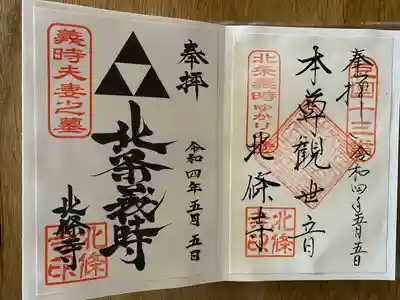 奉拝
令和四年五月五日
本尊觀世音
北条義時ゆかり
北條寺
北條
寺印
奉拝
令和四年五月五日
北条義時
義時夫妻之墓
北條寺
北條
寺印